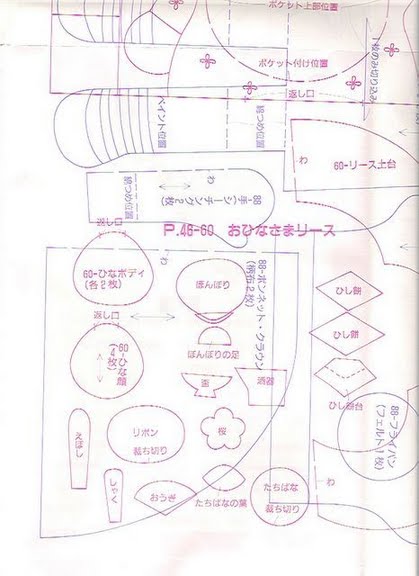 ポケット上部位置
ポケット付け位置
1枚のみ切り込み
返し口
ペイント位置
綿つめ位置
わ
60-リース土台
綿つめ位置
わ
88-手(シーチング2枚)
返し口
P.46-60 おひなさまリース
60-ひなボディ
(各2枚)
ぼんぼり
88-ボンネット・クラウン
(柄布2枚)
わ
ひし餅
返し口
60-ひな顔
(4枚)
ぼんぼりの足
ひし餅
ひし餅台
88-フライパン
(フェルト1枚)
えぼし
リボン
裁ち切り
桜
しゃく
おうぎ
たちばなの葉
たちばな
裁ち切り
わ